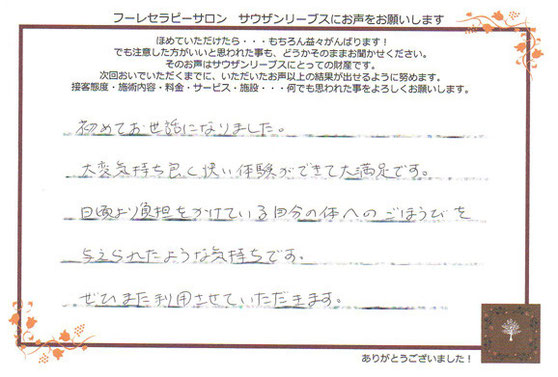 フーレセラピーサロン　サウザンリーブスにお声をお願いします
ほめていただけたら・・・もちろん益々がんばります！
でも注意した方がいいと思われた事も、どうかそのままお聞かせください。
そのお声はサウザンリーブスにとっての財産です。
次回おいでいただくまでに、いただいたお声以上の結果が出せるように努めます。
接客態度・施術内容・料金・サービス・施設・・・何でも思われた事をよろしくお願いします。
初めてお世話になりました。
大変気持ち良く快い体験ができて大満足です。
日頃より負担をかけている自分の体へのごほうびを
与えられたような気持ちです。
ぜひまた利用させていただきます。
ありがとうございました！